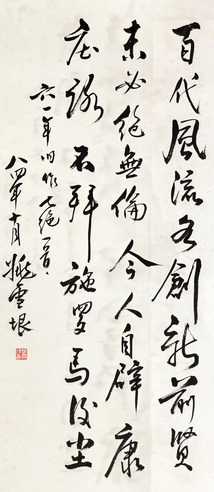 百代风流各創新前賢
未必絕無倫今人自辟康
莊路不拜施羅馬後塵
六一年旧作七绝一首
八四年十月姚雪垠